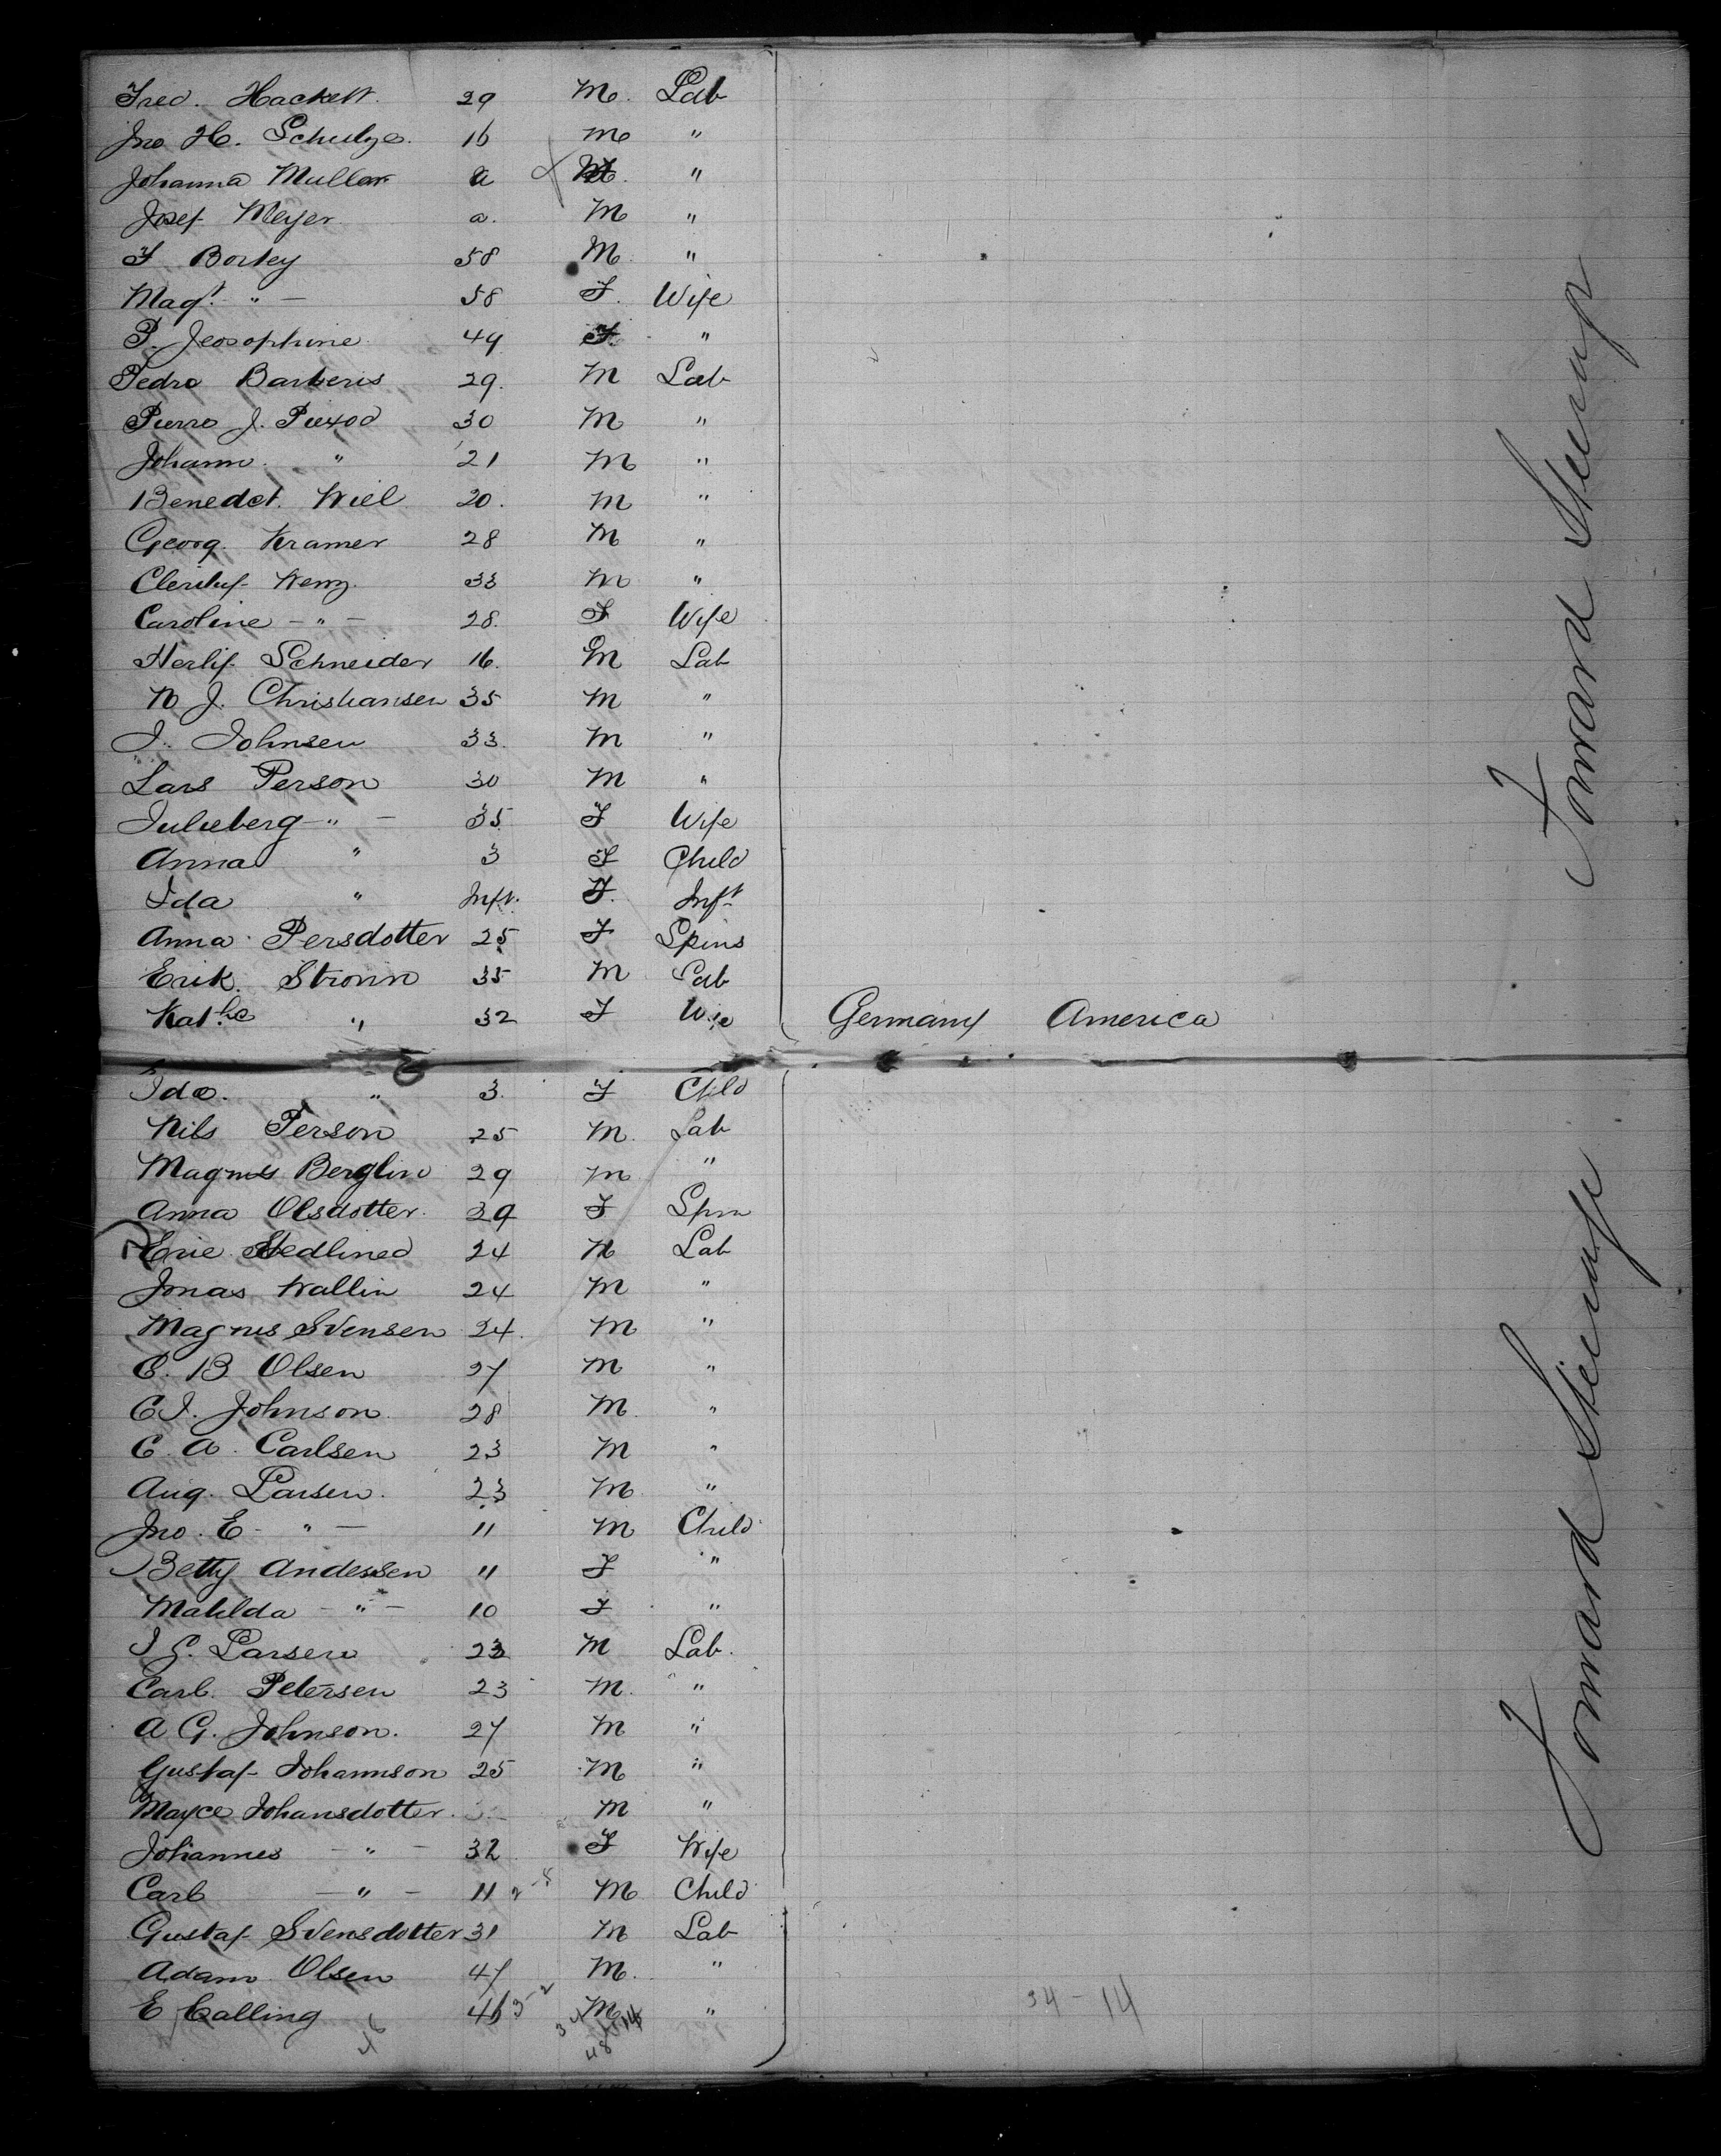 Fred. Hackett. 29 M. Lab
Jno H. Schulze. 16 M "
Johanna Muller a M. "
Josef Meyer a. M "
F Borkey 58 M. "
Magt. " — 58 F. Wife
P. Jeosophine 49 F. "
Pedro Barberis 29. M Lab
Pierre J. Piexod 30 M "
Johann. " 21 M "
Benedct. Wiel 20. M "
Georg. Kramer 28 M "
Wenz. 33 M "
Caroline — " — 28. F Wife
Schneider 16. M Lab
N J. Christiansen 35 M "
J. Johnsen 33. M "
Lars Person 30 M "
Julieberg — " — 35 F Wife
Anna " 3 F Child
Ida " Inft. F. Inft
Anna Persdotter 25 F Spins
Erik. Stronin 35 M Lab
Kathe " 32 F Wife Germany America
Ida. " 3. F Child
Nils Person 25 M. Lab
Magnus Berglin 29 M "
Anna Olsdotter. 29 F Spin
Eric Hedlined 24 M Lab
Jonas Wallin 24 M "
Magnus Svensen 24. M "
C. B Olsen 27 M "
C J. Johnson. 28 M. "
C. A. Carlsen 23 M "
Aug. Larsen. 23 M "
Jno. E - " — 11 M Child
Betty Andessen 11 F "
Matilda — " — 10 F "
J G. Larsen 23 M Lab.
Carl. Petersen 23 M. "
A G. Johnson. 27 M "
Gustaf Johannson 25 M "
Mayce Johansdotter. M "
Johannes — " — 32 F Wife
Carl — " — 11 M Child
Gustaf Svensdotter 31 M Lab
Adam Olsen 47 M. "
E Calling 46 M "
34 - 14
48
46
Forward Steerage
Forward Steerage